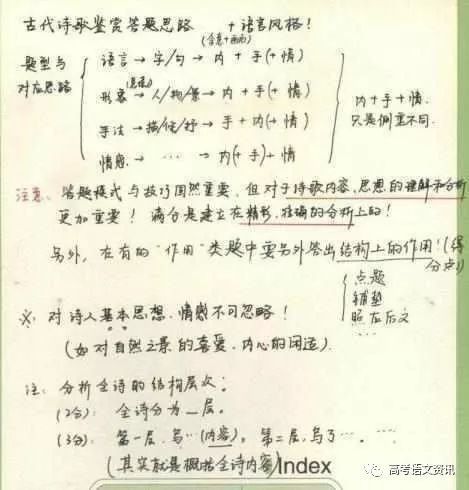 古代诗歌鉴赏答题思路 + 语言风格!
(含意+画面)
题型与
对应思路
语言→字/句→内+手(+情)
形象→人/物/景→内+手(+情)
手法→描/修/抒→手+内(+情)
情感→ … → 内(+手)+情
内+手+情.
只是侧重不同.
注意: 答题模式与技巧固然重要, 但对于诗歌内容、思想的理解和分析
更加重要! 满分是建立在精彩、准确的分析上的!
另外, 在有的“作用”类题中要另外答出结构上的作用!(得
分点!)
点题
铺垫
照应后文
…
※ 对诗人基本思想、情感不可忽略!
(如对自然之景的喜爱、内心的闲适).
注: 分析全诗的结构层次:
(2分): 全诗分为_层.
(3分): 第一层, 写…(内容). 第二层, 写了… ….
(其实就是概括全诗内容) Index
高考语文资讯